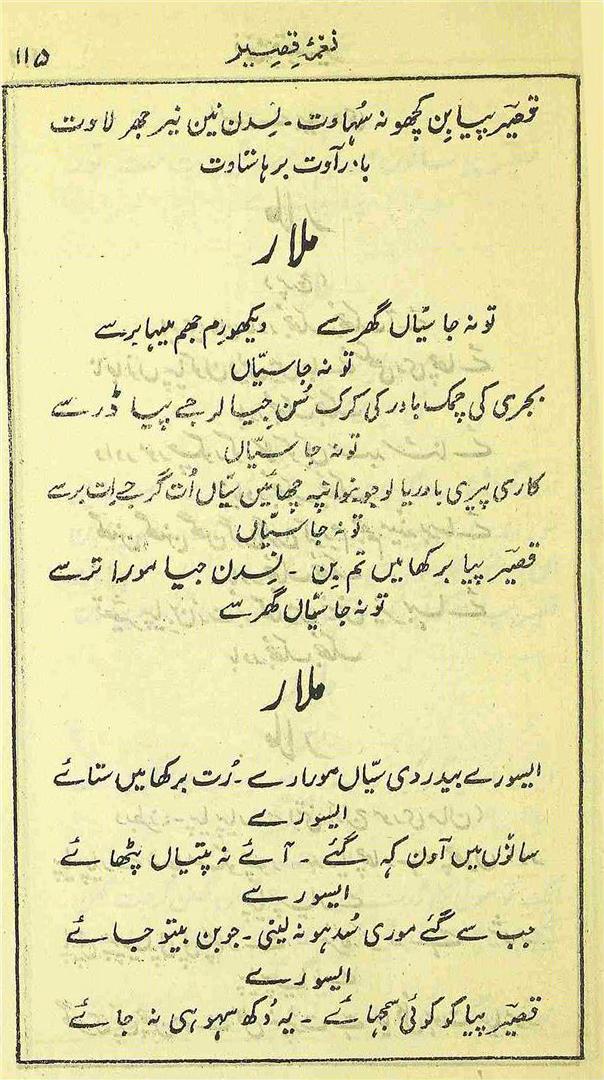 ۱۱۵
نغمۂ قصیر
قصیر پیا بن کچھو نہ سُہاوت ۔ نِسدن نین نیر جھر لاوت
بادر آوت برہا ستاوت
ملار
تو نہ جا سیّاں گھر سے دیکھو رِم جھم میہا برسے
تو نہ جا سیّاں
بجری کی چمک بادر کی کرک سُن جیا لرجے پیا ڈر سے
تو نہ جا سیّاں
کاری پیری بادریا لوجو بنوا پہ چھائیں سیّاں اُت گرجے اِت برسے
تو نہ جا سیّاں
قصیر پیا برکھا میں تم بِن ۔ نِسدن جیا مورا ترسے
تو نہ جا سیّاں گھر سے
ملار
ایسو رے بیدردی سیّاں مورا رے ۔ رُت برکھا میں ستائے
ایسو رے
سانوں میں آون کہہ گئے ۔ آئے نہ پتیاں پٹھائے
ایسو رے
جب سے گئے موری سُدہو نہ لینی ۔ جوبن بیتو جائے
ایسو رے
قصیر پیا کو کوئی سمجھائے ۔ یہ دُکھ سہو ہی نہ جائے